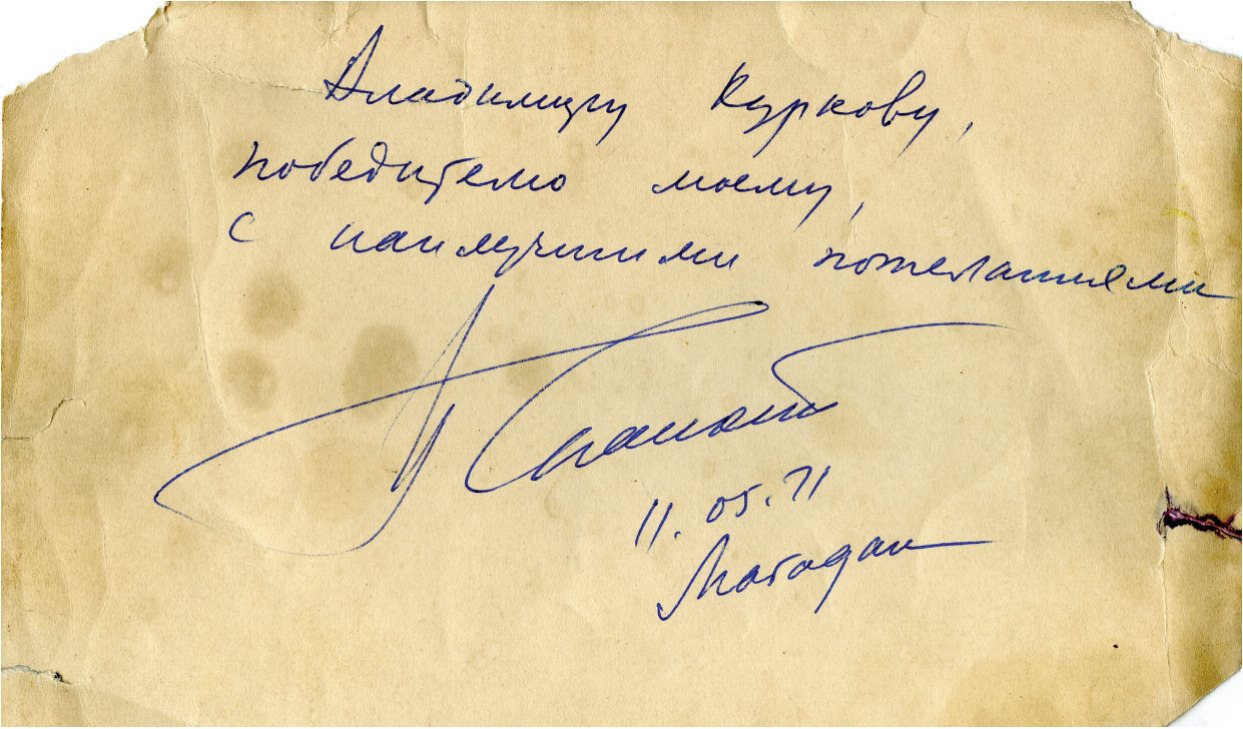 Владимиру Куркову,
победителю моему,
с наилучшими пожеланиями
11.05.71
Магадан